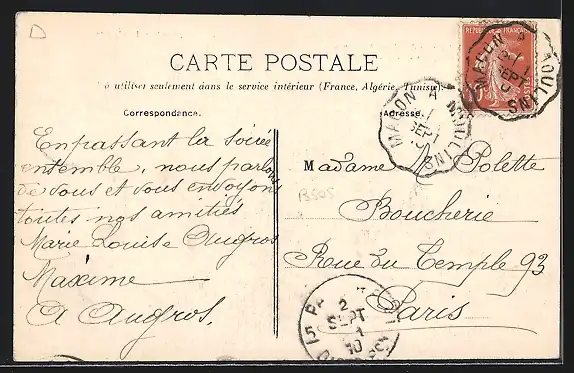 CARTE POSTALE
à utiliser seulement dans le service intérieur (France, Algérie, Tunisie).
Correspondance.
Adresse.
En passant la soirée
ensemble, nous parlons
de vous et vous envoyons
toutes nos amitiés
Marie Louise Augros
Maxime
A Augros.
Madame Polette
Boucherie
Rue du Temple 93
Paris
REPUBLIQUE FRANÇAISE
POSTES
MACON A MOULINS
SEPT
MACON A MOULINS
SEPT
B505
D
2
SEPT
10